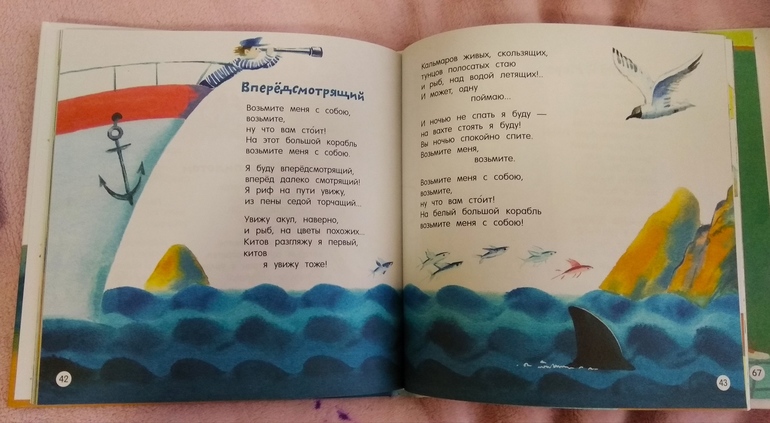 Вперёдсмотрящий
Возьмите меня с собою,
возьмите,
ну что вам сто́ит!
На этот большой корабль
возьмите меня с собою.
Я буду вперёдсмотрящий,
вперёд далеко смотрящий!
Я риф на пути увижу,
из пены седой торчащий...
Увижу акул, наверно,
и рыб, на цветы похожих...
Китов разгляжу я первый,
китов
я увижу тоже!
42
Кальмаров живых, скользящих,
тунцов полосатых стаю
и рыб, над водой летящих!..
И может, одну
поймаю...
И ночью не спать я буду —
на вахте стоять я буду!
Вы ночью спокойно спите.
Возьмите меня,
возьмите.
Возьмите меня с собою,
возьмите,
ну что вам сто́ит!
На белый большой корабль
возьмите меня с собою!
43
67